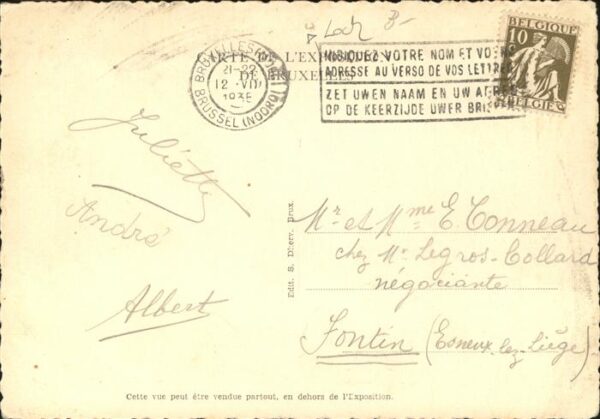 Loch
CARTE DE L'EXPOSITION
DE BRUXELLES
BRUXELLES (NORD)
21-22
12 VII
1935
BRUSSEL (NOORD)
INDIQUEZ VOTRE NOM ET VOTRE
ADRESSE AU VERSO DE VOS LETTRES
ZET UWEN NAAM EN UW ADRES
OP DE KEERZIJDE UWER BRIEVEN
BELGIQUE
10
BELGIË
Juliette
André
Albert
Edit. S. Dherv. Brux.
Mr et Mme E. Conneau
chez Mr Legros-Collard
négociante
Fontin (Esneux-lez-Liège)
Cette vue peut être vendue partout, en dehors de l'Exposition.